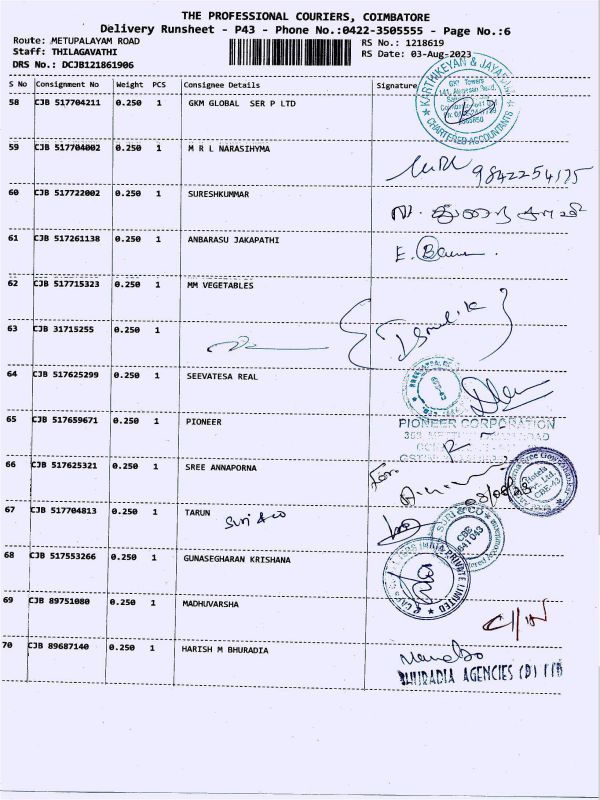 THE PROFESSIONAL COURIERS, COIMBATORE
Delivery Runsheet - P43 - Phone No.:0422-3505555 - Page No.:6
Route: METUPALAYAM ROAD
RS No.: 1218619
Staff: THILAGAVATHI
RS Date: 03-Aug-2023
DRS No.: DCJB121861906
S No Consignment No Weight PCS Consignee Details Signature
58 CJB 517704211 0.250 1 GKM GLOBAL SER P LTD
KARTHIKEYAN & JAYA
CHARTERED ACCOUNTANTS
59 CJB 517704002 0.250 1 M R L NARASIHYMA
9842254175
60 CJB 517722002 0.250 1 SURESHKUMMAR
61 CJB 517261138 0.250 1 ANBARASU JAKAPATHI
62 CJB 517715323 0.250 1 MM VEGETABLES
63 CJB 31715255 0.250 1
64 CJB 517625299 0.250 1 SEEVATESA REAL
65 CJB 517659671 0.250 1 PIONEER
PIONEER CORPORATION
66 CJB 517625321 0.250 1 SREE ANNAPORNA
For
03/08/23
67 CJB 517704813 0.250 1 TARUN
Suri & co
SURI & CO
CBE
641 043
68 CJB 517553266 0.250 1 GUNASEGHARAN KRISHANA
INDIA PRIVATE LIMITED
69 CJB 89751080 0.250 1 MADHUVARSHA
70 CJB 89687140 0.250 1 HARISH M BHURADIA
BHURADIA AGENCIES (P) LTD